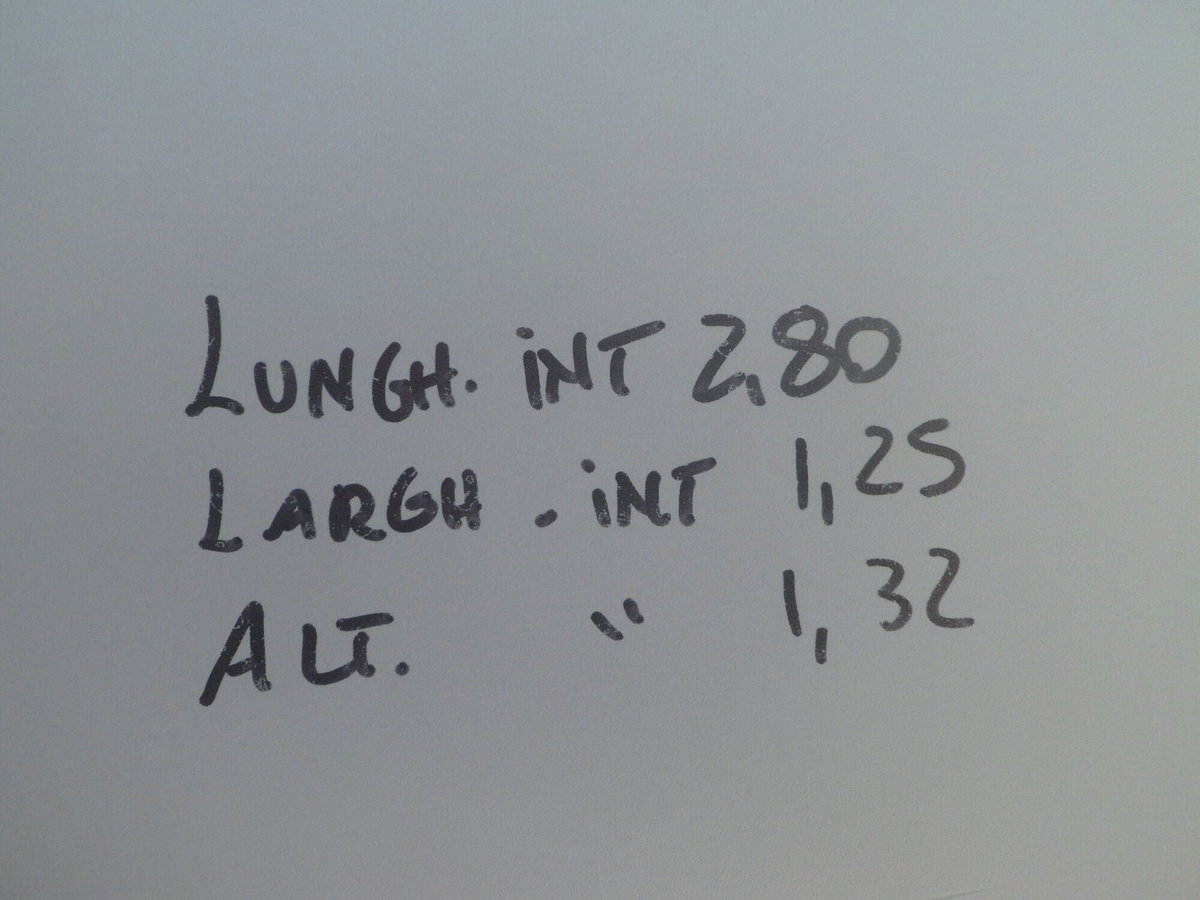 LUNGH. INT 2,80
LARGH. INT 1,25
ALT. " 1,32